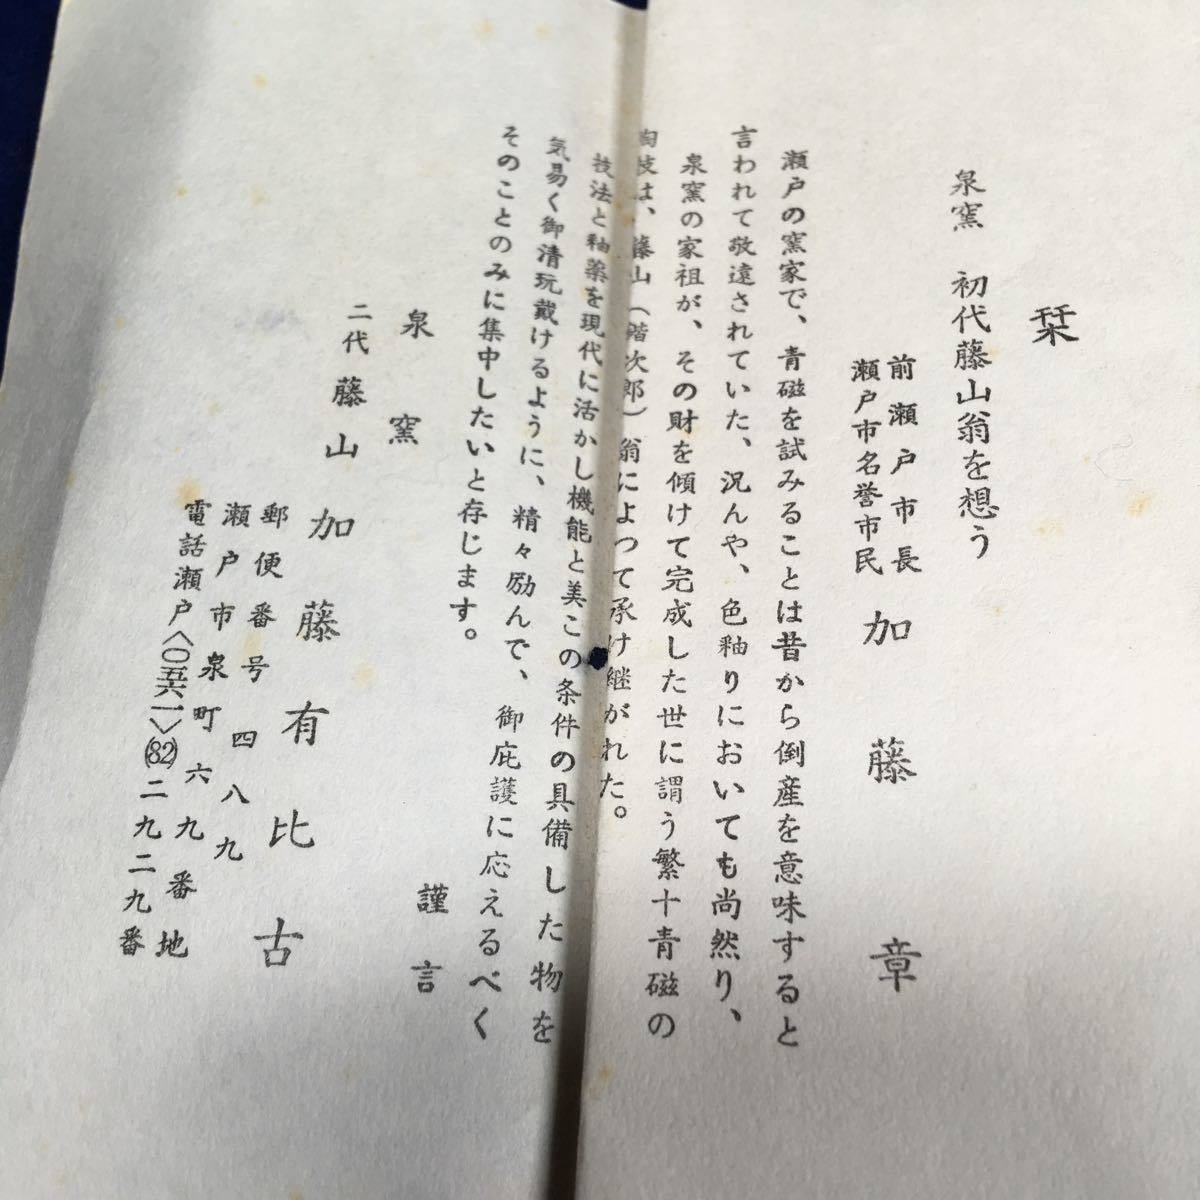 栞
泉窯 初代藤山翁を想う
前瀬戸市長
瀬戸市名誉市民
加藤章
瀬戸の窯家で、青磁を試みることは昔から倒産を意味すると
言われて敬遠されていた、況んや、色釉りにおいても尚然り、
泉窯の家祖が、その財を傾けて完成した世に謂う繁十青磁の
陶技は、藤山(楷次郎)翁によって承け継がれた。
技法と釉薬を現代に活かし機能と美この条件の具備した物を
気易く御清玩戴けるように、精々励んで、御庇護に応えるべく
そのことのみに集中したいと存じます。
謹言
泉窯
二代藤山 加藤有比古
郵便番号四八九
瀬戸市泉町六九番地
電話瀬戸〈〇五六一〉(82)二九二九番